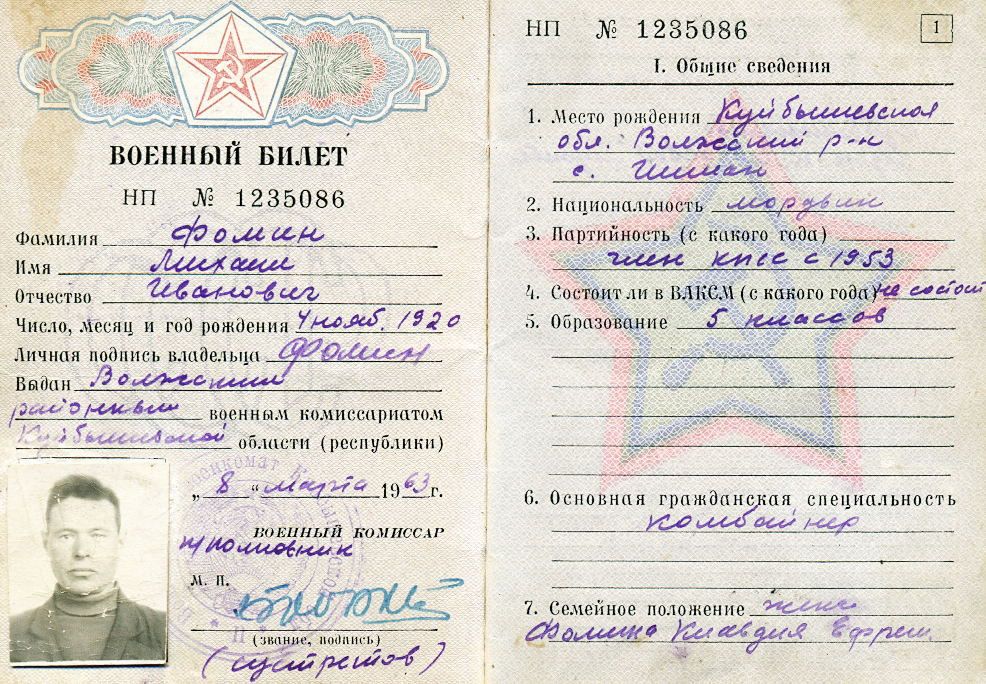 ВОЕННЫЙ БИЛЕТ
НП № 1235086
Фамилия Фомин
Имя Михаил
Отчество Иванович
Число, месяц и год рождения 4 нояб. 1920
Личная подпись владельца Фомин
Выдан Волжским
районным военным комиссариатом
Куйбышевской области (республики)
„ 8 “ марта 1963 г.
ВОЕННЫЙ КОМИССАР
п/полковник
М. П.
(звание, подпись)
НП № 1235086
1
I. Общие сведения
1. Место рождения Куйбышевская
обл. Волжский р-н
с.
2. Национальность мордвин
3. Партийность (с какого года)
член кпсс с 1953
4. Состоит ли в ВЛКСМ (с какого года) не состоит
5. Образование 5 классов
6. Основная гражданская специальность
комбайнер
7. Семейное положение жена
Фомина Клавдия Ефрем.